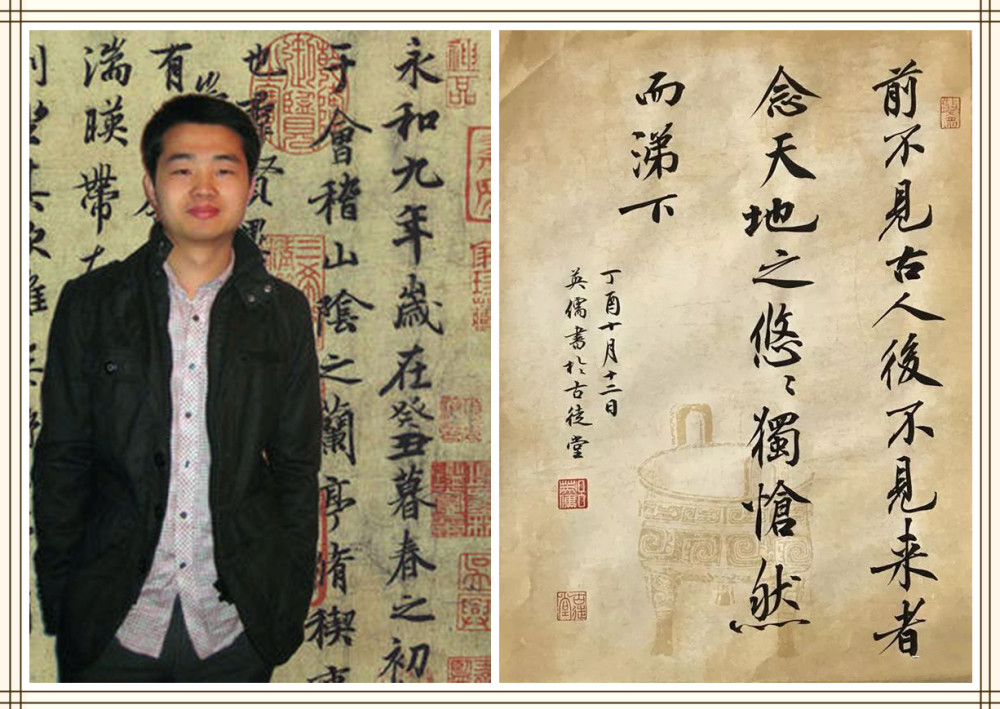 永和九年歲在癸丑暮春之初
于會稽山陰之蘭亭脩稧事
也群賢畢
有
湍暎帶左
坐其次雖無
前不見古人後不見来者
念天地之悠〻獨愴然
而涕下
丁酉十月十二日
英儒書於古徒堂
古徒堂